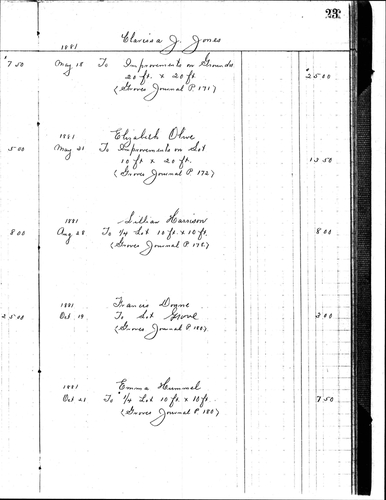 23
Clarissa J. Jones
1881
7 50 May 18 To Improvements on Grounds
20 ft. x 20 ft 25 00
(Groves Journal P. 171)
1881 Elizabeth Olive
5 00 May 21 To Improvements on Lot
10 ft x 20 ft. 13 50
(Groves Journal P. 172)
1881 Lillian Harrison
8 00 Aug 28 To 1/4 Lot 10 ft. x 10 ft. 8 00
(Groves Journal P. 178)
1881 Francis
25 00 Oct. 19 To Lot Grove 2 00
(Groves Journal P. 180)
1881 Emma Hummel
Oct 21 To 1/4 Lot 10 ft x 10 ft. 7 50
(Groves Journal P. 180)